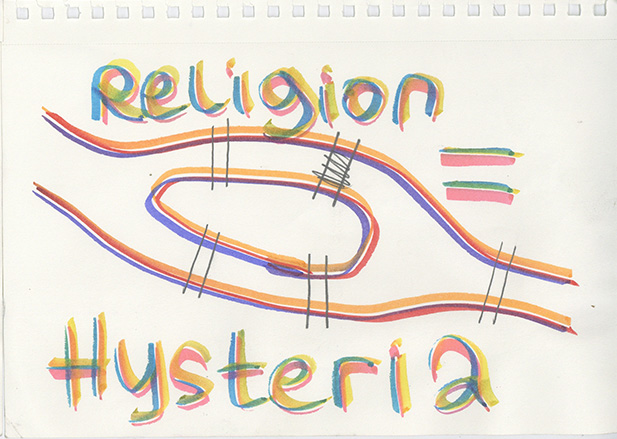 Religion
=
Hysteria